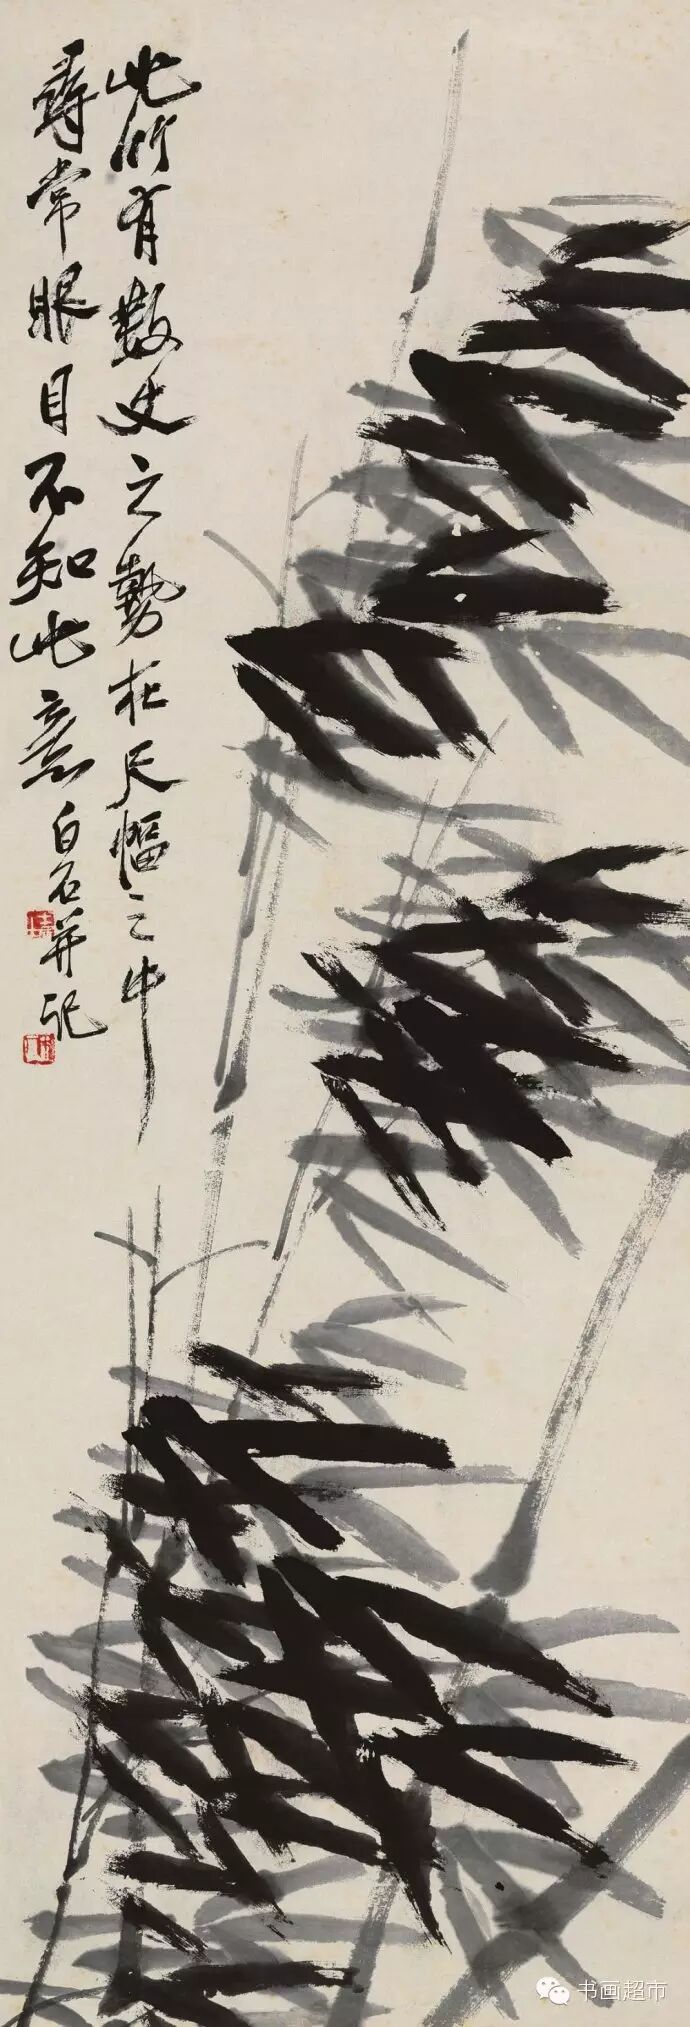 此竹有數丈之勢在尺幅之中
尋常眼目不知此意白石并記
书画超市